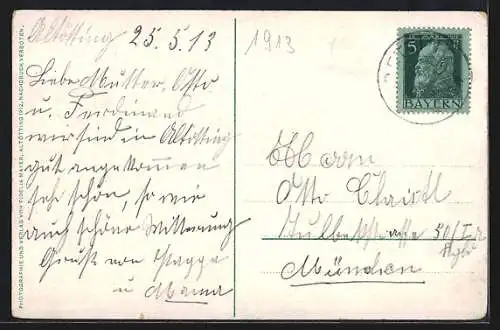 Altötting 25.5.13
1913
Liebe Mutter, Otto
u. Ferdinand
wir sind in Altötting
gut angekommen
sehr schön, so wie
auch schöne Witterung
Gruß von Pappa
u Mama
5
BAYERN
Herrn
Otto
50/I
München
PHOTOGRAPHIE UND VERLAG VON FIDELIA MAYER, ALTÖTTING 1912. NACHDRUCK VERBOTEN.